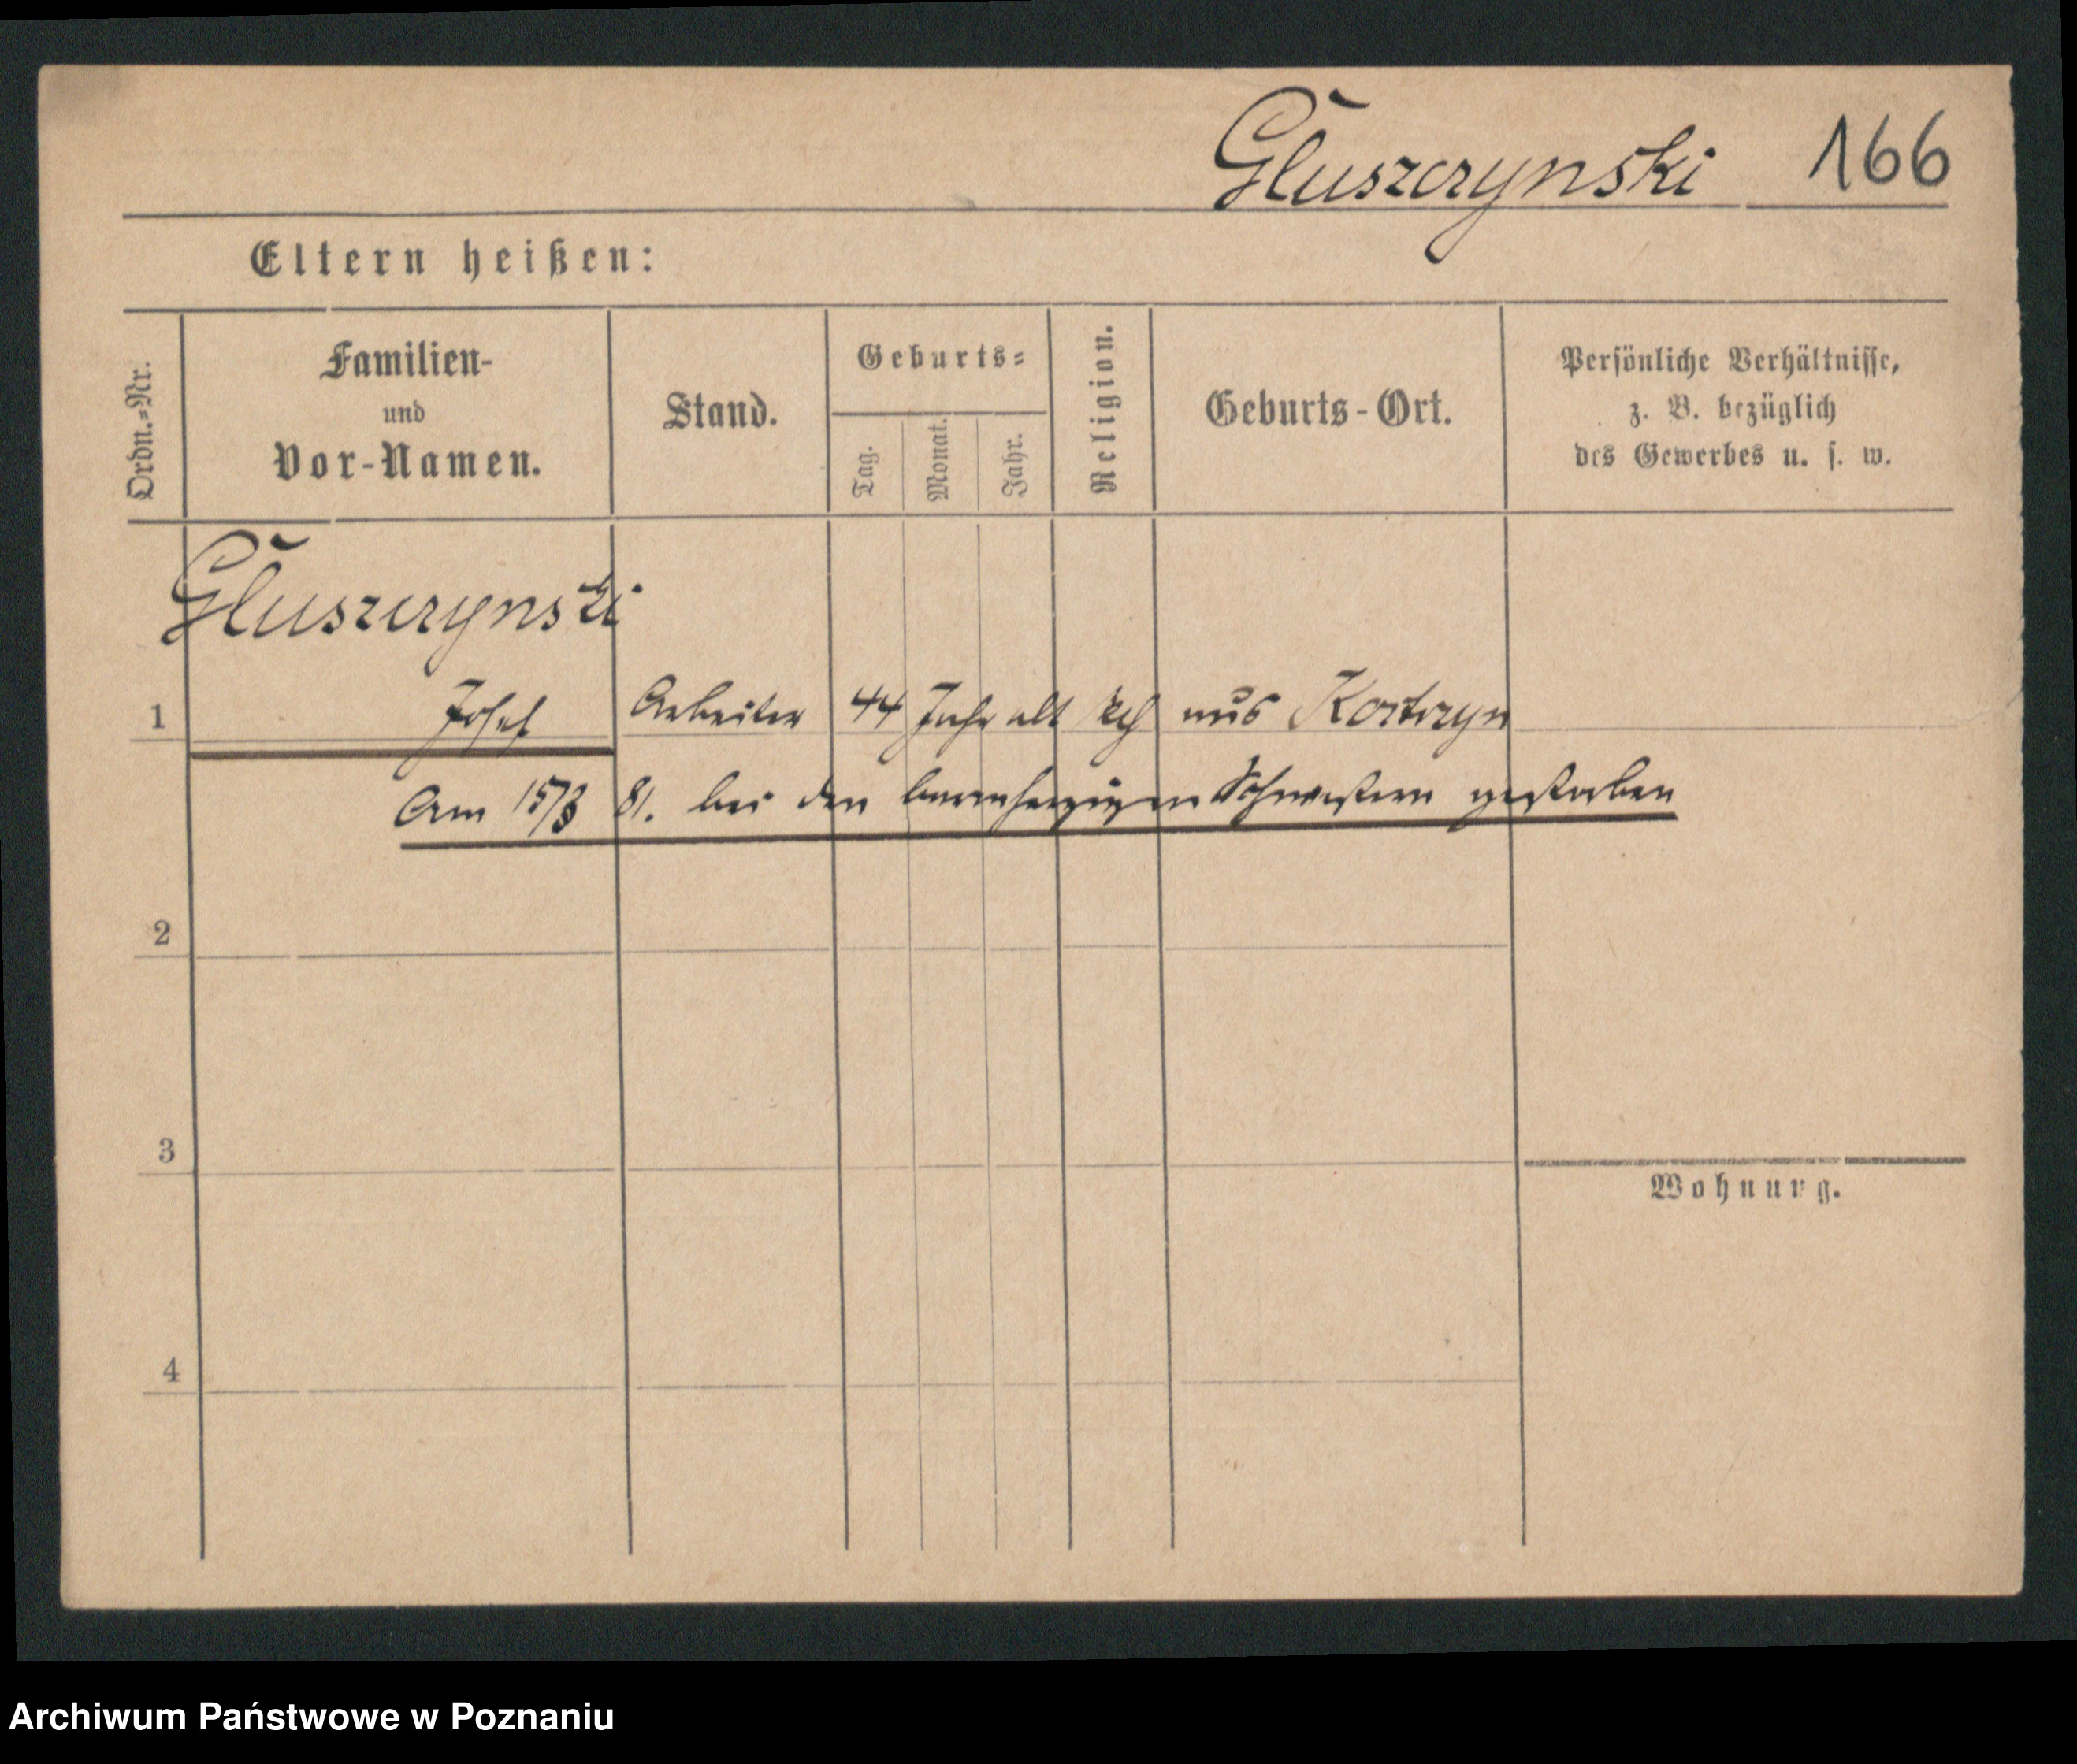 Gluszczynski 166
Eltern heißen:
Ordn.=Nr.
Familien-
und
Vor-Namen.
Stand.
Geburts=
Tag.
Monat.
Jahr.
Religion.
Geburts-Ort.
Persönliche Verhältnisse,
z. B. bezüglich
des Gewerbes u. s. w.
Gluszczynski
1 Josef Arbeiter 44 Jahr alt kth aus Kostrzyn
Am 15/8 81. bei den barmherzigen Schwestern gestorben
2
3
Wohnung.
4
Archiwum Państwowe w Poznaniu